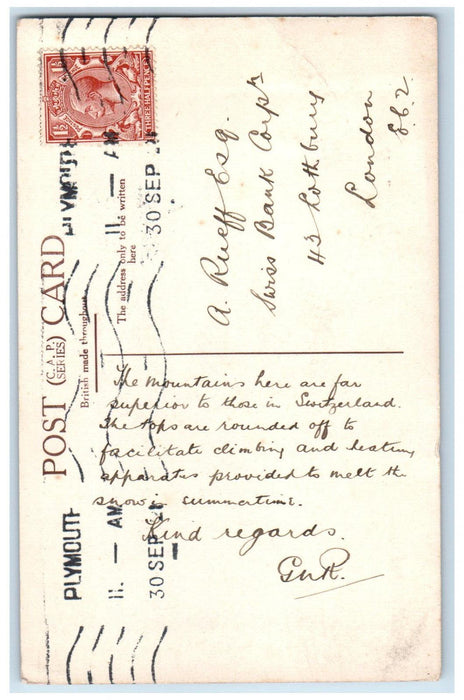 POST CARD
(C.A.P. SERIES)
British made throughout
The address only to be written
here
1½ 1½
THREE HALF PENCE
PLYMOUTH
11 — AM
30 SEP
PLYMOUTH
11 — AM
30 SEP
A. Rueff Esq.
Swiss Bank Corpn
43 Lothbury
London
E.C.2.
The mountains here are far
superior to those in Switzerland.
The tops are rounded off to
facilitate climbing and heating
apparatus provided to melt the
snow in summertime.
Kind regards.